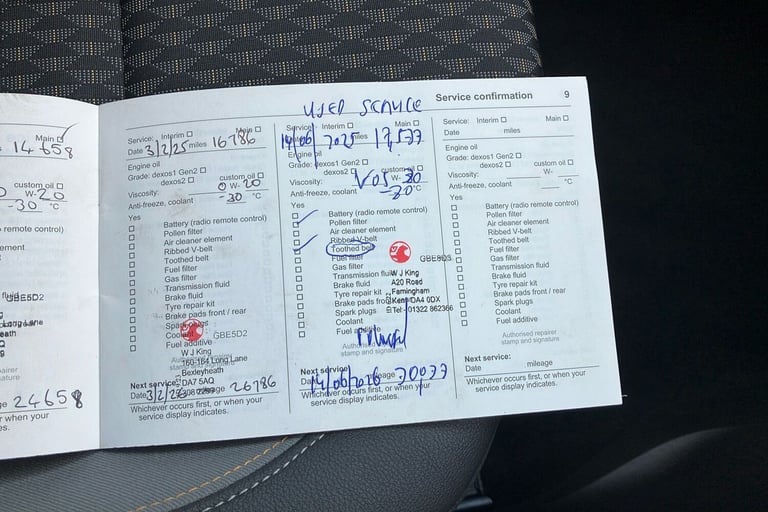 Main
14658
custom oil
W-20
-30 °C
remote control)
ement
fluid
GBE5D2
rear
Long Lane
eath
pairer
nature
24658
or when your
es.
Service: Interim Main
Date 3/2/25 miles 16786
Engine oil
Grade: dexos1 Gen2
dexos2 custom oil
Viscosity: 0 W-20
Anti-freeze, coolant -30 °C
Yes
Battery (radio remote control)
Pollen filter
Air cleaner element
Ribbed V-belt
Toothed belt
Fuel filter
Gas filter
Transmission fluid
Brake fluid
Tyre repair kit
Brake pads front / rear
Spark plugs
Coolant
GBE5D2
Fuel additive
W J King
160-164 Long Lane
Bexleyheath
stamp and signature
Next service: DA7 5AQ
mileage 26786
Whichever occurs first, or when your
service display indicates.
USED SERVICE
Service Interim Main
14/06/2025 miles 17,577
Engine oil
Grade: dexos1 Gen2
dexos2 custom oil
Viscosity:
Anti-freeze, coolant °C
Yes
Battery (radio remote control)
Pollen filter
Air cleaner element
Ribbed V-belt
Toothed belt
Fuel filter
Gas filter
Transmission fluid
W J King
Brake fluid
A20 Road
Tyre repair kit
Farningham
Brake pads front
Kent DA4 0DX
Spark plugs
Tel:- 01322 862366
Coolant
Fuel additive
stamp and signature
Next service:
14/06/2026 mileage
Whichever occurs first, or when your
service display indicates.
Service confirmation 9
Service: Interim Main
Date miles
Engine oil
Grade: dexos1 Gen2
dexos2 custom oil
Viscosity: W-
Anti-freeze, coolant °C
Yes
Battery (radio remote control)
Pollen filter
Air cleaner element
Ribbed V-belt
Toothed belt
Fuel filter
Gas filter
Transmission fluid
Brake fluid
Tyre repair kit
Brake pads front / rear
Spark plugs
Coolant
Fuel additive
Authorised repairer
stamp and signature
Next service:
Date mileage
Whichever occurs first, or when your
service display indicates.